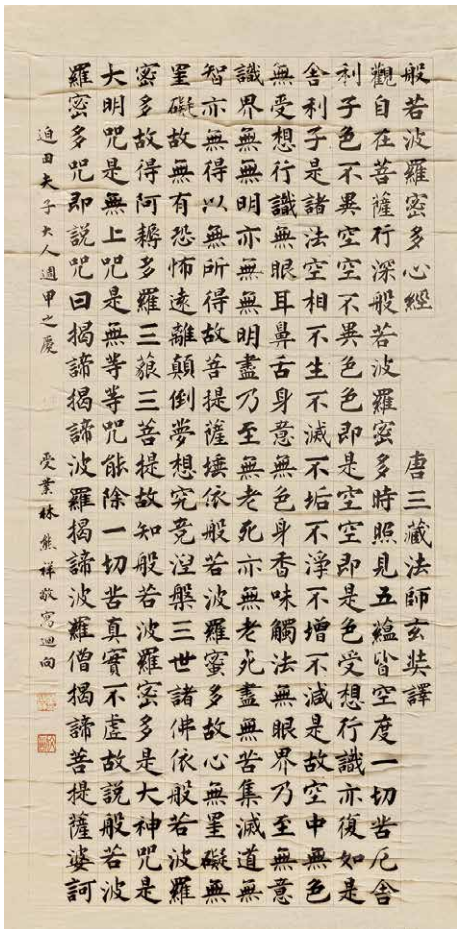 般若波羅密多心經　唐三藏法師玄奘譯
觀自在菩薩行深般若波羅密多時照見五蘊皆空度一切苦厄舍
利子色不異空空不異色色即是空空即是色受想行識亦復如是
舍利子是諸法空相不生不滅不垢不淨不增不減是故空中無色
無受想行識無眼耳鼻舌身意無色身香味觸法無眼界乃至無意
識界無無明亦無無明盡乃至無老死亦無老死盡無苦集滅道無
智亦無得以無所得故菩提薩埵依般若波羅蜜多故心無罣礙無
罣礙故無有恐怖遠離顛倒夢想究竟涅槃三世諸佛依般若波羅
密多故得阿耨多羅三藐三菩提故知般若波羅密多是大神咒是
大明咒是無上咒是無等等咒能除一切苦真實不虛故說般若波
羅密多咒即說咒曰揭諦揭諦波羅揭諦波羅僧揭諦菩提薩婆訶
迫田夫子大人週甲之慶　受業林熊祥敬寫迴向